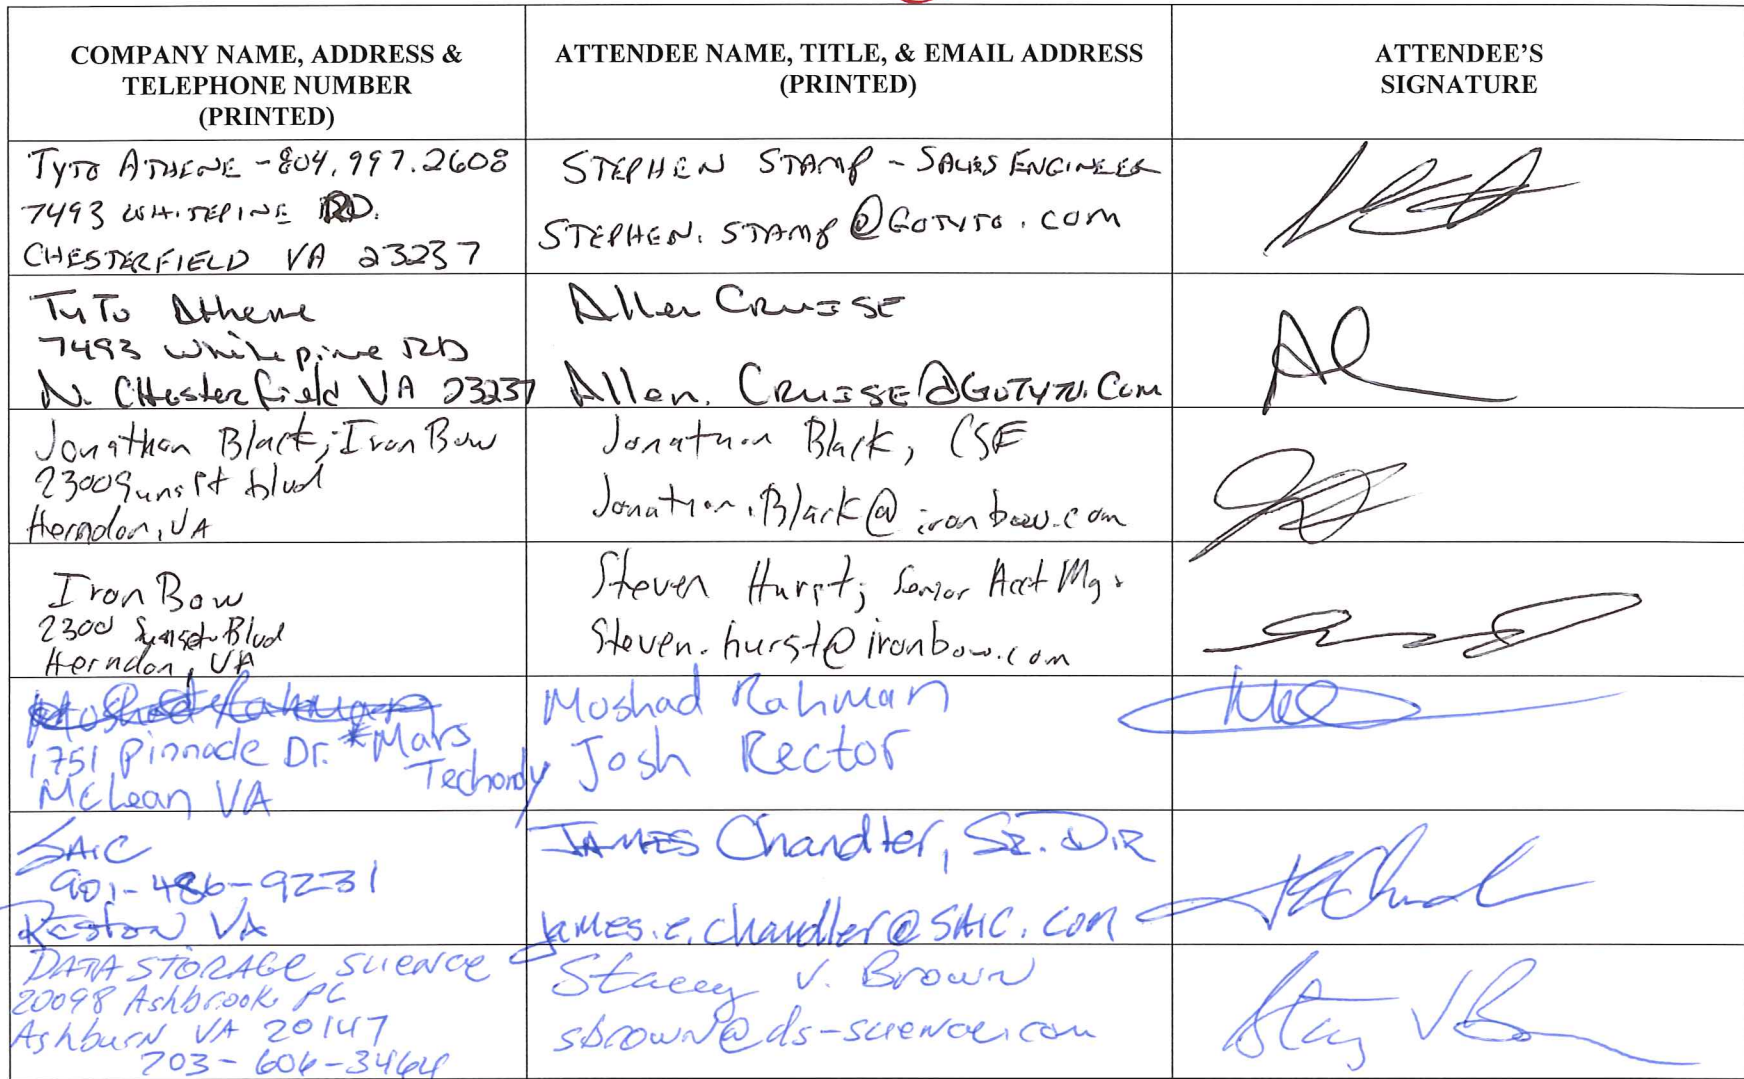 COMPANY NAME, ADDRESS &
TELEPHONE NUMBER
(PRINTED)
ATTENDEE NAME, TITLE, & EMAIL ADDRESS
(PRINTED)
ATTENDEE'S
SIGNATURE
TYTO ATHENE - 804.997.2608
7493 WHITEPINE RD.
CHESTERFIELD VA 23237
STEPHEN STAMP - SALES ENGINEER
STEPHEN.STAMP@GOTYTO.COM
TyTo Athene
7493 Whitepine RD
N. CHesterfield VA 23237
Allen CRUISE
Allen.CRUISE@GOTYTO.Com
Jonathan Black; Iron Bow
2300 Sunset blvd
Herndon, VA
Jonathan Black, CSE
Jonathan.Black@ironbow.com
Iron Bow
2300 Sunset Blvd
Herndon, VA
Steven Hurst; Senior Acct Mgr
Steven.hurst@ironbow.com
1751 Pinnacle Dr. *Mars
McLean VA
Moshad Rahman
Josh Rector
SAIC
901-486-9231
Reston VA
JAMES Chandler, SR. DIR
james.e.chandler@SAIC.com
DATA STORAGE SCIENCE
20098 Ashbrook PL
Ashburn VA 20147
703-606-3464
Stacey V. Brown
sbrown@ds-science.com